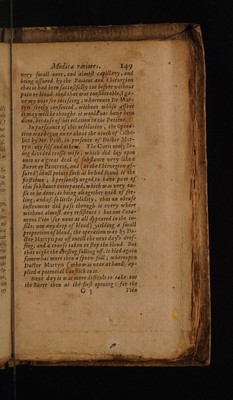 Medicæ rariores. 149
very small ones, and almost capillary, and
being assured by the Patient and Chirurgion
that it had been successfully cut before without
pain or blood that was considerable, I ga-
ve my vote for incising; whereunto Dr Mar-
tyn freely consented, without whose assent
it may well be thought it would not have been
done, because of his relation to the Patient.
In pursuance of this resolution, the Opera-
tion was begun on or about the ninth of Octo-
ber by Mr. in presence of Doctor Mar-
tyn my self and others. The Cuticle only be-
ing divided crosse wise, which did lay open
unto us a great deal of substance very like a
Barre or Fungous, and (as the Chirurgion as-
sured) should points such as he had found it the
first time; I presently urged to have part of
this substance extirpated, which was very ea-
sy to be done, it being altogether void of fee-
ling, and of so little solidity, that an obtuse
instrument did pass through it every where
without almost any resistance: but one Cuta-
neous Vein (for none at all appeared in the in-
side, nor any drop of blood) yielding a small
proportion of blood, the operation was by Do-
ctor Martyn put off untill the next day's dres-
sing, and a course taken to stop the blood. But
that night the dressing falling off, it bled again
somewhat more then a spoon full; whereupon
Doctor Martyn (who was near at hand) ap-
plied a potential Caustick to it.
Next day it was more difficult to take out
the Barre then at the first opening; for the
G 3 Vein